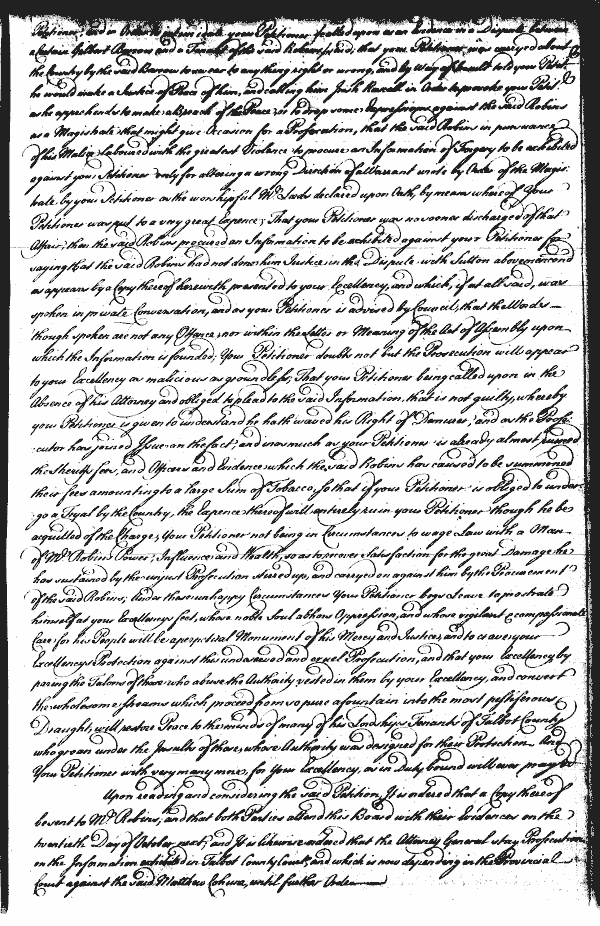 Petitioner, and in Order to intimidate your Petitioner called upon as an Evidence in a Dispute between
a Certain Gilbert Barrow and a Tenant of the said Robins, said, that your Petitioner was carryed about
the Country by the said Barrow to swear to any thing right or wrong, and by way of Insult told your Petit.
he would make a Justice of Peace of him, and calling him in Order to provoke your Petit.
as he apprehends to make a Breach of the Peace, or to drop some Expressions against the said Robins
as a Magistrate that might give Occasion for a Prosecution, that the said Robins in pursuance
of his Malice laboured with the greatest Violence to procure an Information of Forgery to be exhibited
against your Petitioner only for altering a wrong Direction of a Warrant wrote by Order of the Magis-
trate, by your Petitioner as the worshipful Mr. declared upon Oath, by means whereof Your
Petitioner was put to a very great Expence; That your Petitioner was no sooner discharged of that
Affair, than the said Robins procured an Information to be exhibited against your Petitioner for
saying that the said Robins had not done him Justice in the Dispute with Sutton above
as appears by a Copy thereof herewith presented to your Excellency, and which, if at all said, was
spoken in private Conversation, and as your Petitioner is advised by Council, that the Words
though spoken are not any Offence, nor within the Letter or Meaning of the Act of Assembly upon
which the Information is founded, Your Petitioner doubts not but the Prosecution will appear
to your Excellency as malicious as groundless; That your Petitioner being called upon in the
Absence of his Attorney and obliged to plead to the said Information, that is not guilty, whereby
your Petitioner is given to understand he hath waved his Right of Demurrer, and as the Prose-
cutor has joined Issue on the fact, and inasmuch as your Petitioner is already almost ruined
the Sheriffs fees, and Officers and Evidence which the said Robins has caused to be summoned
their fees amounting to a large Sum of Tobacco, so that if your Petitioner is obliged to under
go a Tryal by the Country, the Expence thereof will entirely ruin your Petitioner though he be
acquitted of the Charge, Your Petitioner not being in Circumstances to wage Law with a Man
of Mr. Robins's Power, Influence, and Wealth, so as to recover Satisfaction for the great Damage he
has sustained by the unjust Prosecution stirred up, and carryed on against him by the Procurement
of the said Robins; Under these unhappy Circumstances Your Petitioner begs Leave to prostrate
himself at your Excellencys feet, whose noble Soul abhors Oppression, and whose vigilant & compassionate
Care for his People will be a perpetual Monument of his Mercy and Justice, and to crave your
Excellencys Protection against this undeserved and cruel Prosecution, and that your Excellency by
pareing the Talons of those who abuse the Authority vested in them by your Excellency, and convert
the wholesome streams which proceed from so pure a fountain into the most pestiferous
Draughts, will restore Peace to the minds of many of his Lordships Tenants of Talbot County
who groan under the Insults of those, whose Authority was designed for their Protection. And
Your Petitioner with very many more, for Your Excellency, as in Duty bound will ever pray &c
Upon reading and considering the said Petition, It is ordered that a Copy thereof
be sent to Mr. Robins, and that both Parties attend this Board with their Evidences on the
twentieth Day of October next, and It is likewise ordered that the Attorney General stay Prosecution
on the Information exhibited in Talbot County Court, and which is now depending in the Provincial
Court against the said Matthew until further Order